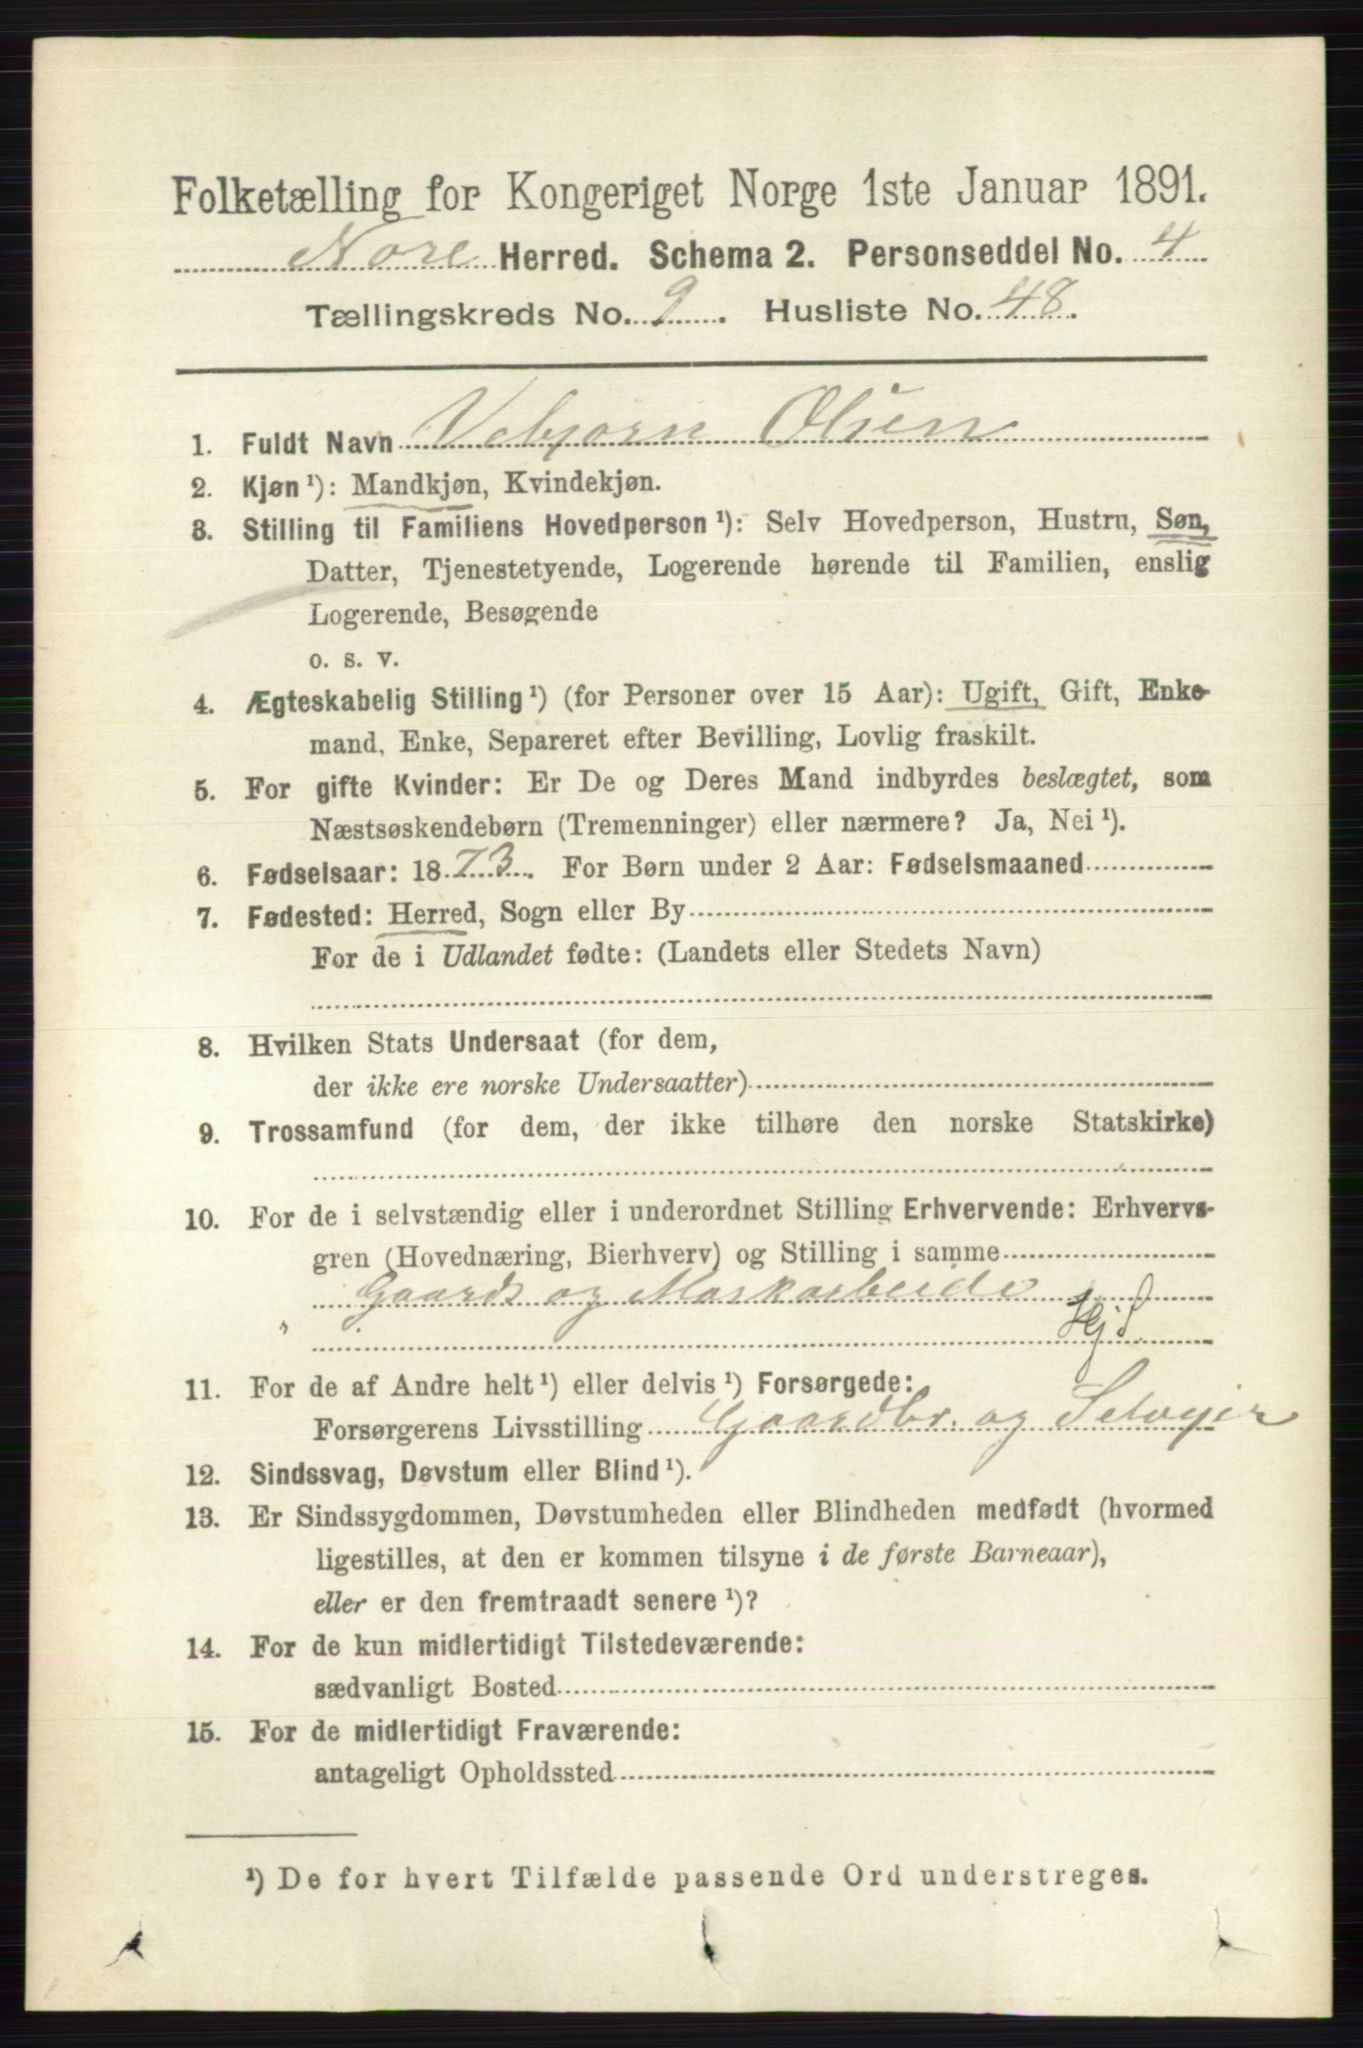 Folketælling for Kongeriget Norge 1ste Januar 1891.
Nore Herred. Schema 2. Personseddel No. 4
Tællingskreds No. 9. Husliste No. 48.
1. Fuldt Navn Vebjørn Olsen
2. Kjøn ¹): Mandkjøn, Kvindekjøn.
3. Stilling til Familiens Hovedperson ¹): Selv Hovedperson, Hustru, Søn,
Datter, Tjenestetyende, Logerende hørende til Familien, enslig
Logerende, Besøgende
o. s. v.
4. Ægteskabelig Stilling ¹) (for Personer over 15 Aar): Ugift, Gift, Enke-
mand, Enke, Separeret efter Bevilling, Lovlig fraskilt.
5. For gifte Kvinder: Er De og Deres Mand indbyrdes beslægtet, som
Næstsøskendebørn (Tremenninger) eller nærmere? Ja, Nei ¹).
6. Fødselsaar: 1873. For Børn under 2 Aar: Fødselsmaaned
7. Fødested: Herred, Sogn eller By
For de i Udlandet fødte: (Landets eller Stedets Navn)
8. Hvilken Stats Undersaat (for dem,
der ikke ere norske Undersaatter)
9. Trossamfund (for dem, der ikke tilhøre den norske Statskirke)
10. For de i selvstændig eller i underordnet Stilling Erhvervende: Erhvervs-
gren (Hovednæring, Bierhverv) og Stilling i samme
Gaards og Markarbeide
Hj S.
11. For de af Andre helt ¹) eller delvis ¹) Forsørgede:
Forsørgerens Livsstilling Gaardbr. og Selveier
12. Sindssvag, Døvstum eller Blind ¹).
13. Er Sindssygdommen, Døvstumheden eller Blindheden medfødt (hvormed
ligestilles, at den er kommen tilsyne i de første Barneaar),
eller er den fremtraadt senere ¹)?
14. For de kun midlertidigt Tilstedeværende:
sædvanligt Bosted
15. For de midlertidigt Fraværende:
antageligt Opholdssted
¹) De for hvert Tilfælde passende Ord understreges.